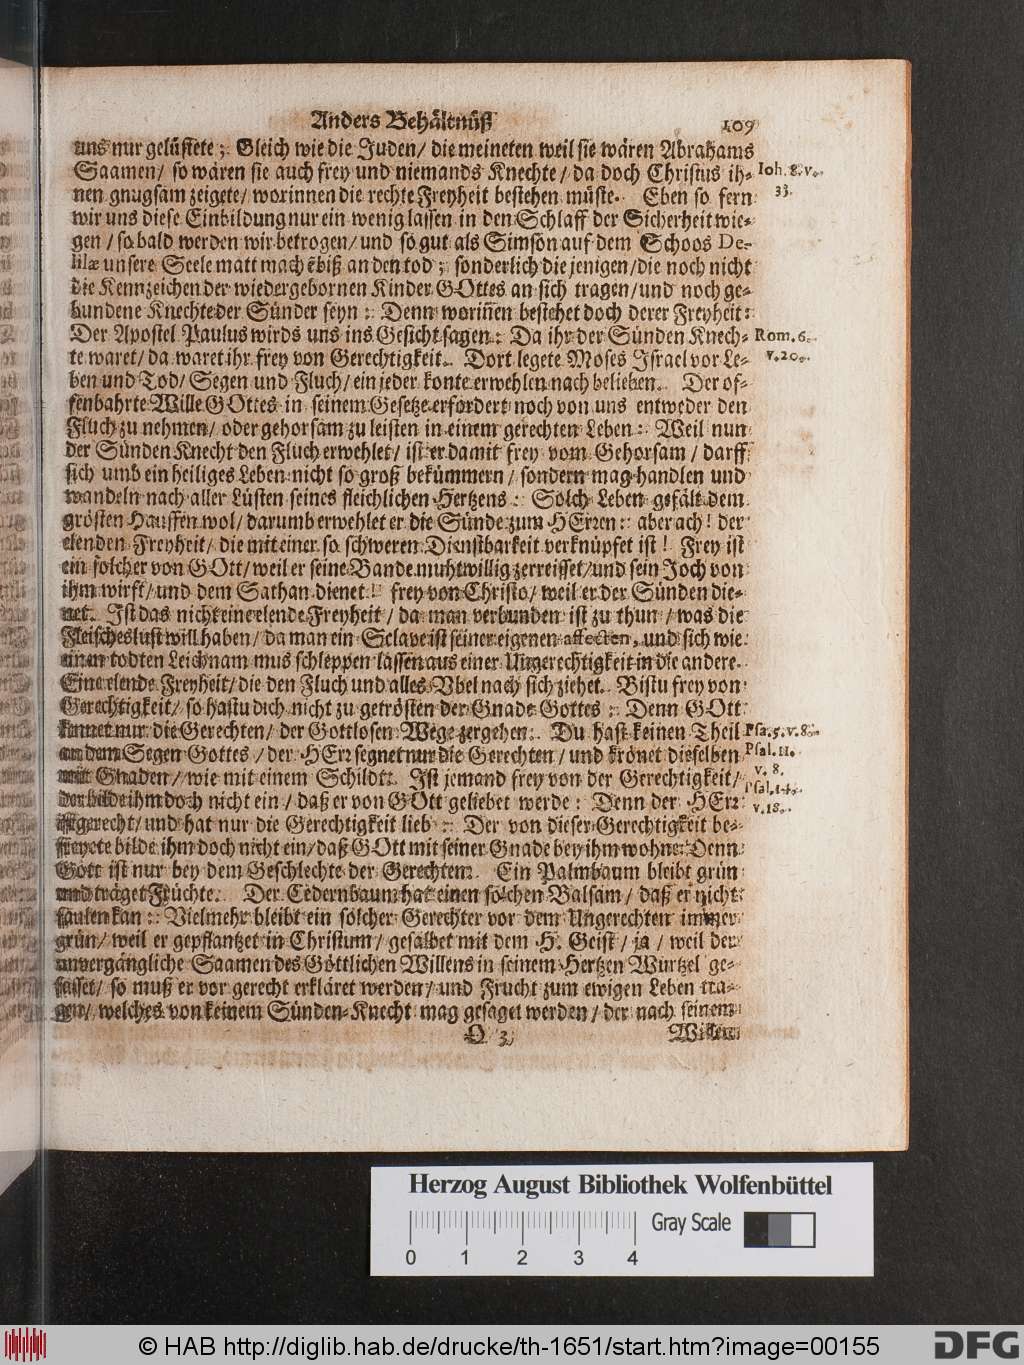 Anders Behältnüß 109
uns nur gelüstete; Gleich wie die Juden/ die meineten weil sie wären Abrahams
Saamen/ so wären sie auch frey und niemands Knechte/ da doch Christus ih- Ioh. 8. v.
nen gnugsam zeigete/ worinnen die rechte Freyheit bestehen müste. Eben so fern 33.
wir uns diese Einbildung nur ein wenig lassen in den Schlaff der Sicherheit wie-
gen/ so bald werden wir betrogen/ und so gut als Simson auf dem Schoos De-
lilæ unsere Seele matt machẽ biß an den tod; sonderlich die jenigen/ die noch nicht
die Kennzeichen der wiedergebornen Kinder GOttes an sich tragen/ und noch ge-
bundene Knechte der Sünder seyn: Denn woriñen bestehet doch derer Freyheit:
Der Apostel Paulus wirds uns ins Gesicht sagen: Da ihr der Sünden Knech- Rom. 6.
te waret/ da waret ihr frey von Gerechtigkeit. Dort legete Moses Israel vor Le- v. 20.
ben und Tod/ Segen und Fluch/ ein jeder konte erwehlen nach belieben. Der of-
fenbahrte Wille GOttes in seinem Gesetze erfordert noch von uns entweder den
Fluch zu nehmen/ oder gehorsam zu leisten in einem gerechten Leben: Weil nun
der Sünden Knecht den Fluch erwehlet/ ist er damit frey vom Gehorsam/ darff
sich umb ein heiliges Leben nicht so groß bekümmern/ sondern mag handlen und
wandeln nach aller Lüsten seines fleichlichen Hertzens: Solch Leben gefält dem
grösten Hauffen wol/ darumb erwehlet er die Sünde zum HErren: aber ach! der
elenden Freyheit/ die mit einer so schweren Dienstbarkeit verknüpfet ist! Frey ist
ein solcher von GOtt/ weil er seine Bande muhtwillig zerreisset/ und sein Joch von
ihm wirft/ und dem Sathan dienet! frey von Christo/ weil er der Sünden die-
net. Ist das nicht eine elende Freyheit/ da man verbunden ist zu thun/ was die
Fleischeslust will haben/ da man ein Sclave ist seiner eigenen affecten, und sich wie
einen todten Leichnam mus schleppen lassen aus einer Ungerechtigkeit in die andere.
Eine elende Freyheit/ die den Fluch und alles Vbel nach sich ziehet. Bistu frey von
Gerechtigkeit/ so hastu dich nicht zu getrösten der Gnade Gottes: Denn GOtt
kennet nur die Gerechten/ der Gottlosen Wege zergehen. Du hast keinen Theil Psa. 5. v. 8.
an dem Segen Gottes/ der HErr segnet nur die Gerechten/ und krönet dieselben Psal. 11.
mit Gnaden/ wie mit einem Schilde. Ist jemand frey von der Gerechtigkeit/ v. 8.
der bilde ihm doch nicht ein/ daß er von GOtt geliebet werde: Denn der HErr Psal. 14.
ist gerecht/ und hat nur die Gerechtigkeit lieb: Der von dieser Gerechtigkeit be- v. 18.
freyete bilde ihm doch nicht ein/ daß GOtt mit seiner Gnade bey ihm wohne: Denn
Gott ist nur bey dem Geschlechte der Gerechten. Ein Palmbaum bleibt grün
und träget Früchte. Der Cedernbaum hat einen solchen Balsam/ daß er nicht
faulen kan: Vielmehr bleibt ein solcher Gerechter vor dem Ungerechten immer
grün/ weil er gepflantzet in Christum/ gesalbet mit dem H. Geist/ ja/ weil der
unvergängliche Saamen des Göttlichen Willens in seinem Hertzen Wurtzel ge-
fasset/ so muß er vor gerecht erkläret werden/ und Frucht zum ewigen Leben tra-
gen/ welches von keinem Sünden-Knecht mag gesaget werden/ der nach seinem
O 3 Willen
Herzog August Bibliothek Wolfenbüttel
Gray Scale
0 1 2 3 4
© HAB http://diglib.hab.de/drucke/th-1651/start.htm?image=00155
DFG